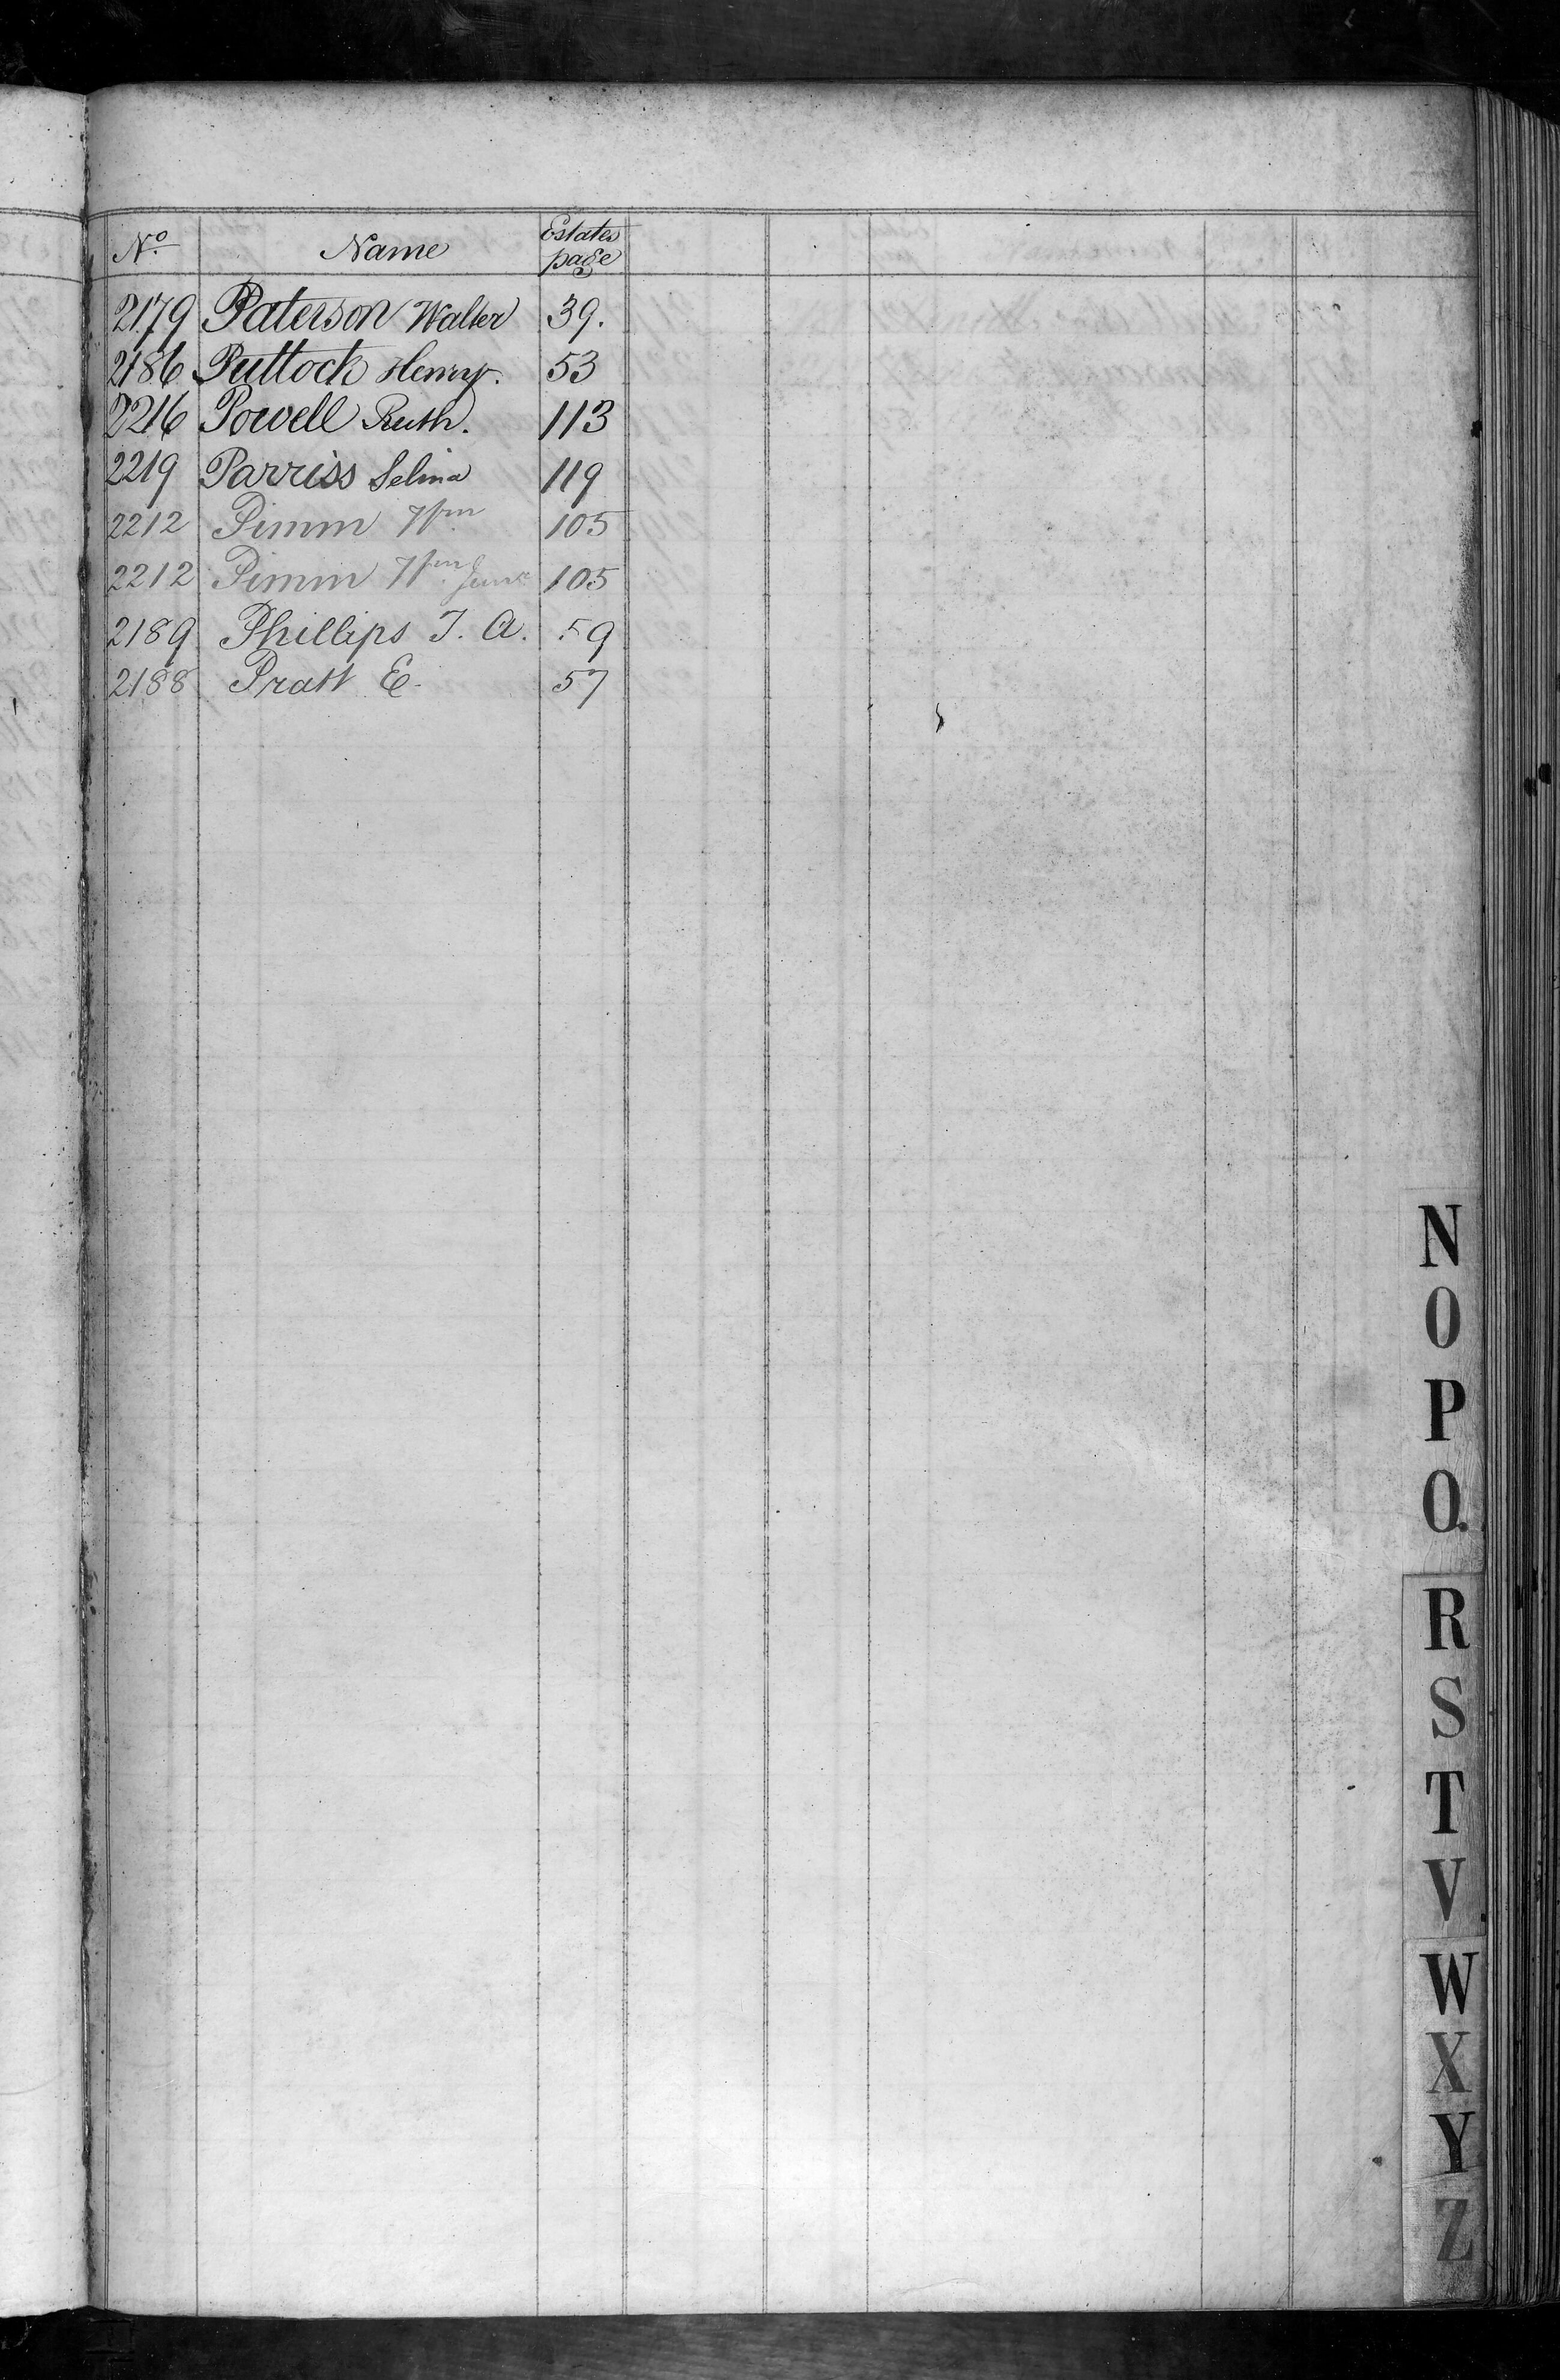 No. Name Estates page
2179 Paterson Walter 39.
2186 Puttock Henry. 53
2216 Powell Ruth. 113
2219 Parriss Selina 119
2212 Pimm Wm 105
2212 Pimm Wm Junr 105
2189 Phillips J. A. 59
2188 Pratt E. 57
N
O
P
Q.
R
S
T
V
W
X
Y
Z